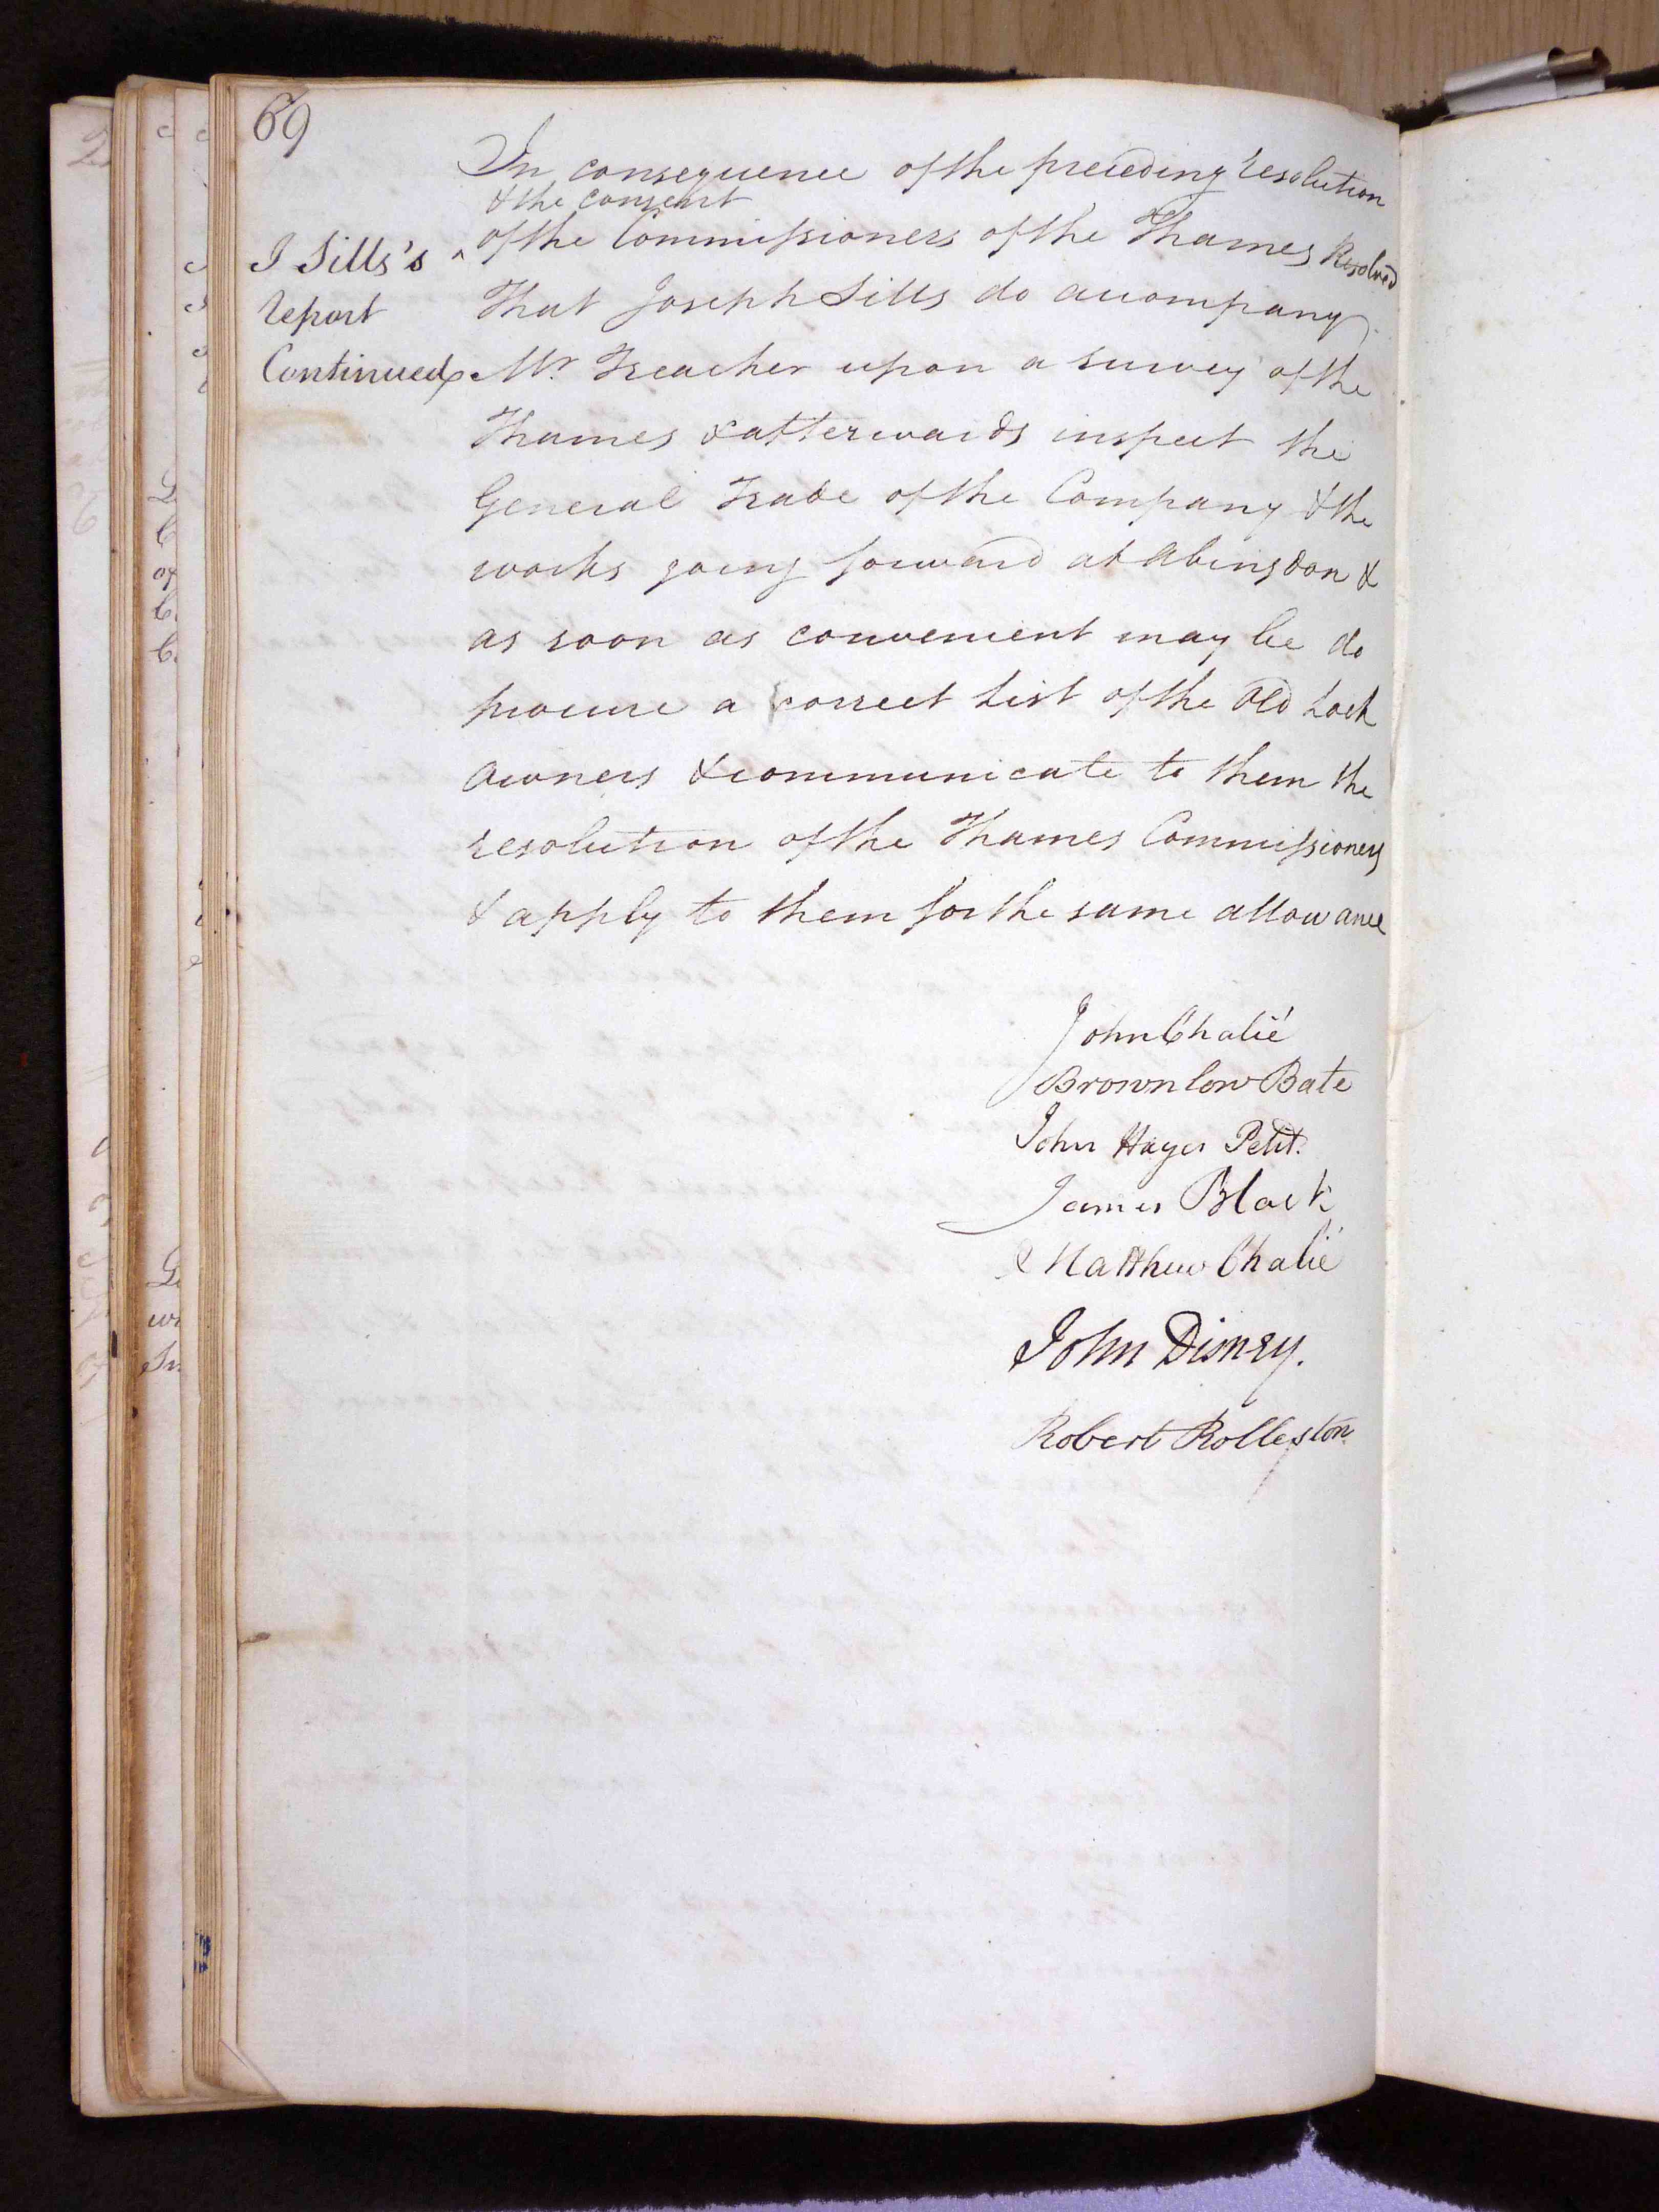 69
In consequence of the preceding resolution
& the consent
of the Commissioners of the Thames Resolved
I Sills's
report
Continued
That Joseph Sills do accompany
Mr. Treacher upon a survey of the
Thames & atterwards inspect the
General Trade of the Company & the
works going forward at Abingdon &
as soon as convenient may be do
procure a correct List of the Old Lock
Owners & communicate to them the
resolution of the Thames Commissioners
& apply to them for the same allowance
John Chalié
Brownlow Bate
John Hayes Petit.
James Black
Matthew Chalié
John Disney.
Robert Rolleston